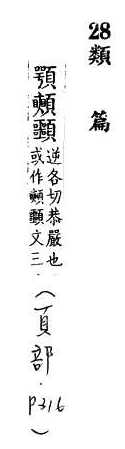 28類 篇
顎
逆各切恭嚴也
或作文三
（頁部．P316）